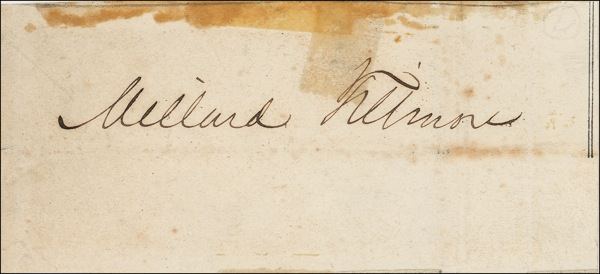 Millard Fillmore